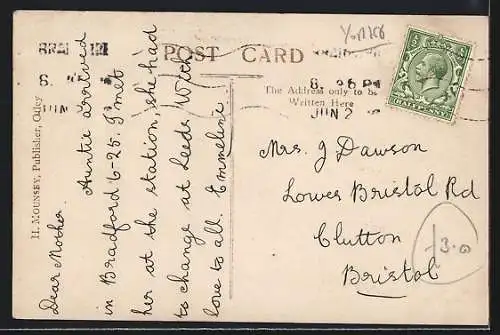 Yorks
POST CARD
BRAD
8. 26 PM
JUN 2
8.
JUN
HALFPENNY
The Address only to be
Written Here
H. MOUNSEY, Publisher, Otley
Dear Mother.
Auntie arrived
in Bradford 6-25. I met
her at the station, she had
to change at Leeds. With
love to all. Emmeline
Mrs. J Dawson
Lower Bristol Rd
Clutton
Bristol